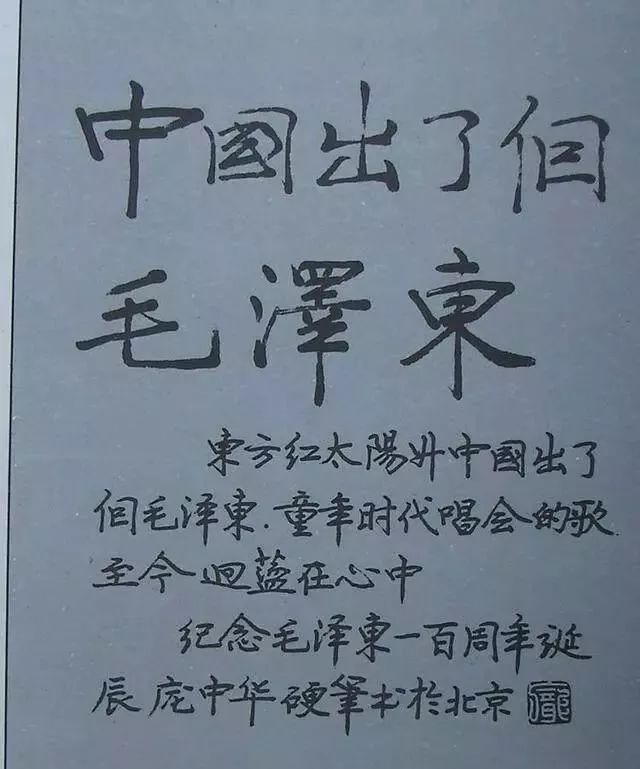 中國出了個
毛澤東
東方红太陽升中國出了
個毛泽東.童年时代唱会的歌
至今迴蕩在心中
纪念毛泽東一百周年诞
辰庞中华硬筆书於北京